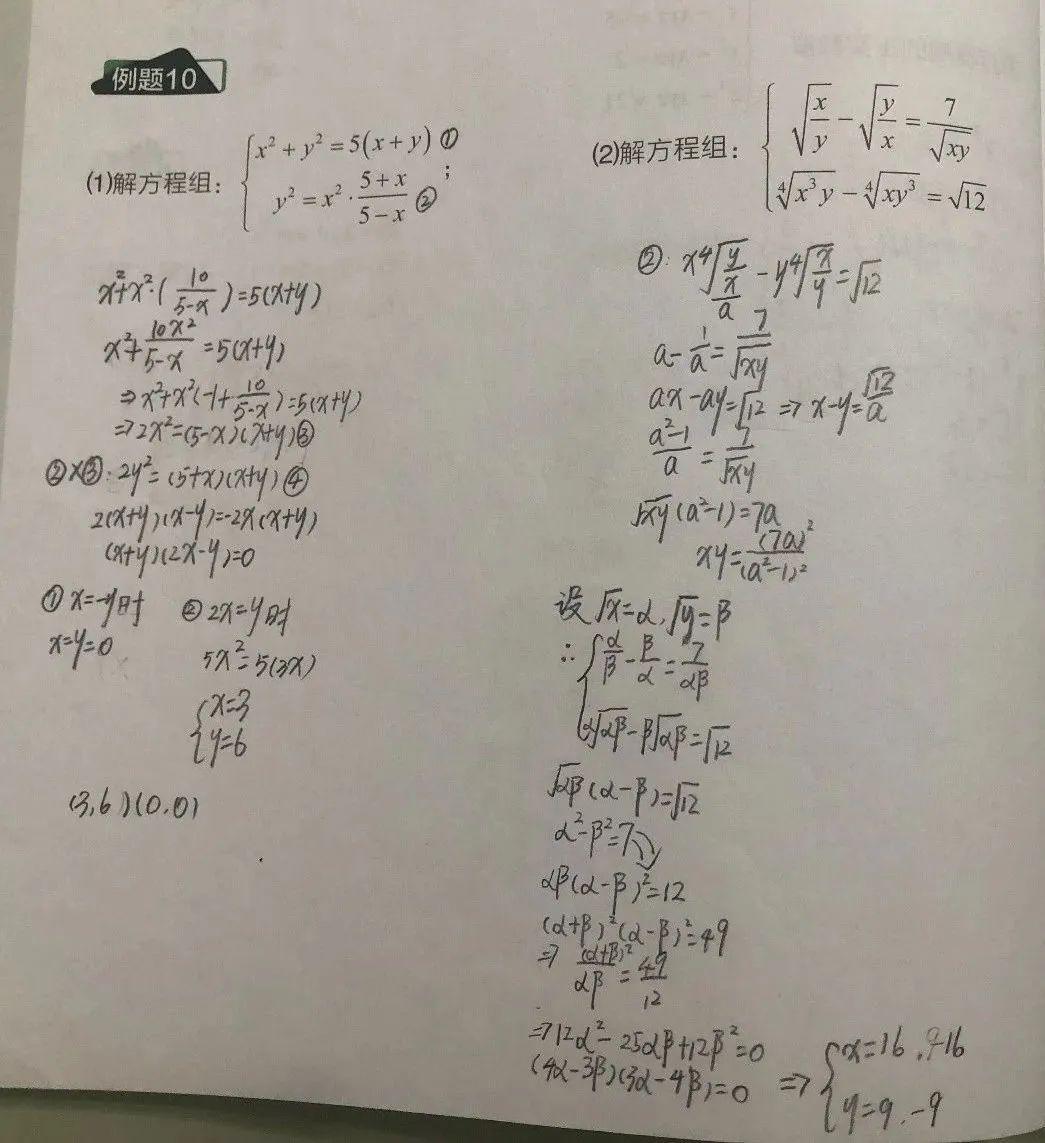 例题10
(1)解方程组：{x² + y² = 5(x + y) ①
y² = x² · (5 + x)/(5 − x) ② ;
x² + x²·(10/(5-x)) = 5(x+y)
x² + 10x²/(5-x) = 5(x+y)
⇒ x² + x²(-1 + 10/(5-x)) = 5(x+y)
⇒ 2x² = (5-x)(x+y) ③
②×③: 2y² = (5+x)(x+y) ④
2(x+y)(x-y) = -2x(x+y)
(x+y)(2x-y) = 0
① x=-y时 ② 2x=y时
x=y=0
5x² = 5(3x)
{x=3
y=6
(3,6)(0,0)
(2)解方程组：{√(x/y) − √(y/x) = 7/√(xy)
∜(x³y) − ∜(xy³) = √12
②: x∜(y/x) - y∜(x/y) = √12
a
a - 1/a = 7/√xy
ax - ay = √12 ⇒ x-y = √12/a
(a²-1)/a = 7/√xy
√xy (a²-1) = 7a
xy = (7a)²/(a²-1)²
设 √x = α, √y = β
∴ {α/β - β/α = 7/αβ
α√αβ - β√αβ = √12
√αβ (α-β) = √12
α²-β² = 7
αβ(α-β)² = 12
(α+β)²(α-β)² = 49
⇒ (α+β)²/αβ = 49/12
⇒ 12α² - 25αβ + 12β² = 0
(4α-3β)(3α-4β) = 0 ⇒ {x=16, -16
y=9, -9